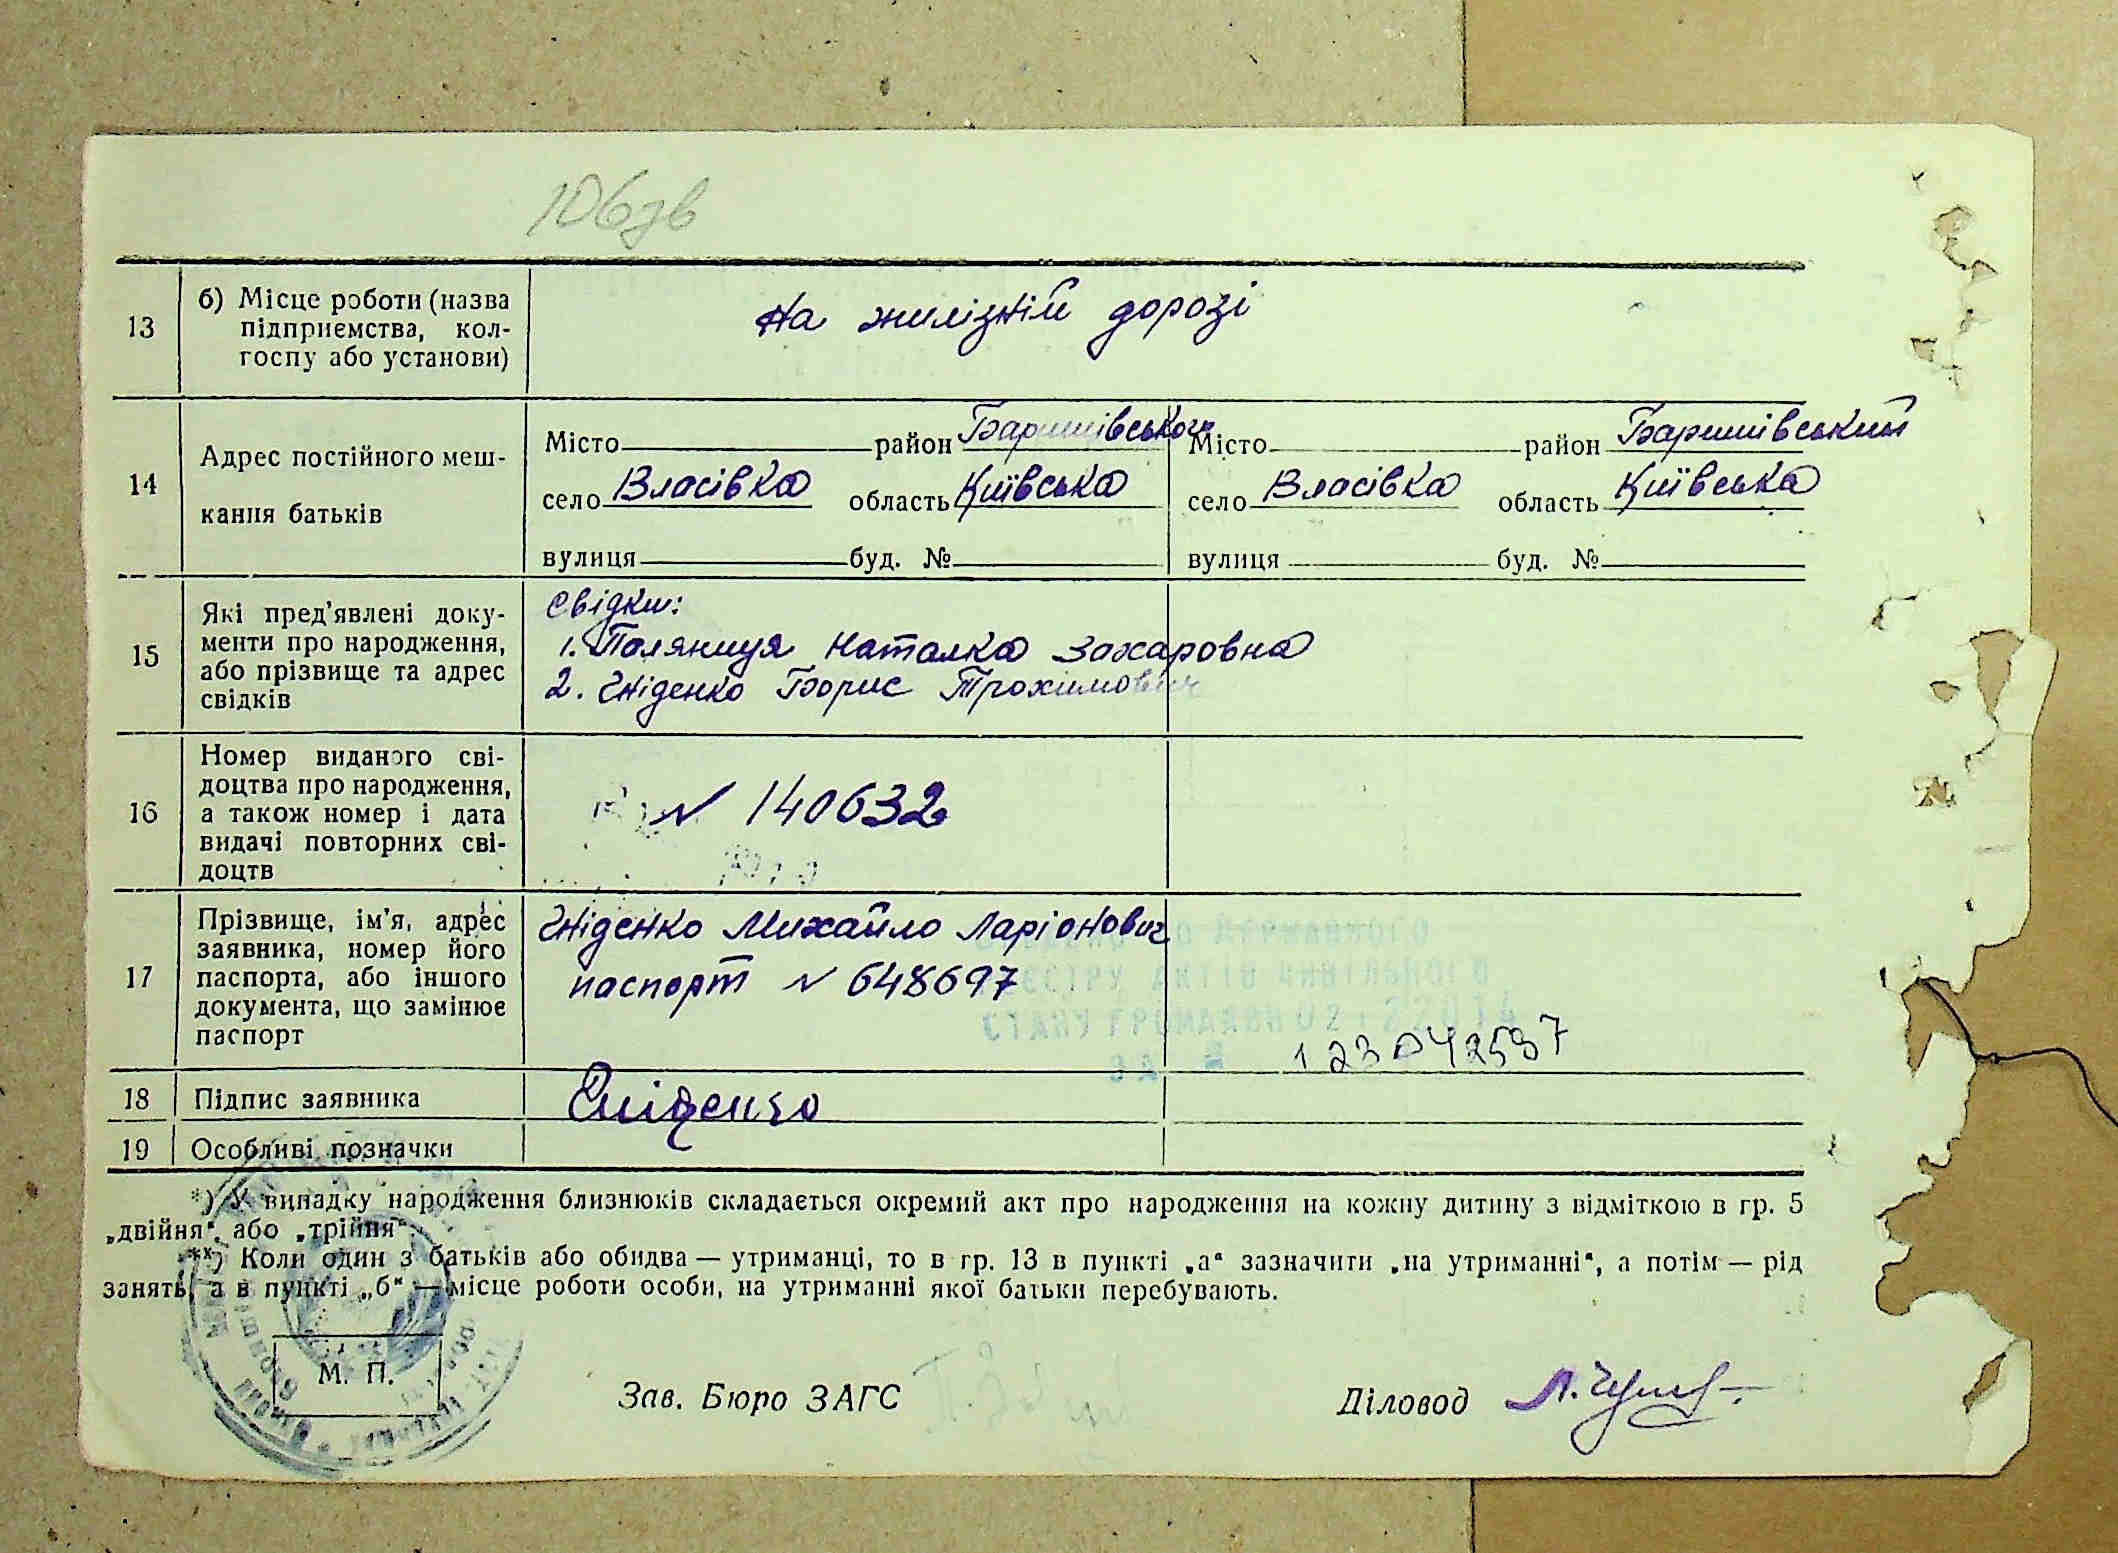 106зв
13
б) Місце роботи (назва
підприємства, кол-
госпу або установи)
На жилізній дорозі
14
Адрес постійного меш-
кання батьків
Місто район Баришівського
село Власівка область Київська
вулиця буд. №
Місто район Баришівський
село Власівка область Київська
вулиця буд. №
15
Які пред'явлені доку-
менти про народження,
або прізвище та адрес
свідків
Свідки:
1. Паляниця Наталка Захаровна
2. Гніденко Борис Трохимович
16
Номер виданого сві-
доцтва про народження,
а також номер і дата
видачі повторних сві-
доцтв
N 140632
17
Прізвище, ім'я, адрес
заявника, номер його
паспорта, або іншого
документа, що замінює
паспорт
Гніденко Михайло Ларіонович
паспорт N 648697
ДО ДЕРЖАВНОГО
РЕЄСТРУ АКТІВ ЦИВІЛЬНОГО
СТАНУ ГРОМАДЯН
ЗА № 123042537
18
Підпис заявника
Гніденко
19
Особливі позначки
*) У випадку народження близнюків складається окремий акт про народження на кожну дитину з відміткою в гр. 5
„двійня“, або „трійня“.
**) Коли один з батьків або обидва — утриманці, то в гр. 13 в пункті „а“ зазначити „на утриманні“, а потім — рід
занять, а в пункті „б“ — місце роботи особи, на утриманні якої батьки перебувають.
М. П.
Зав. Бюро ЗАГС
Діловод